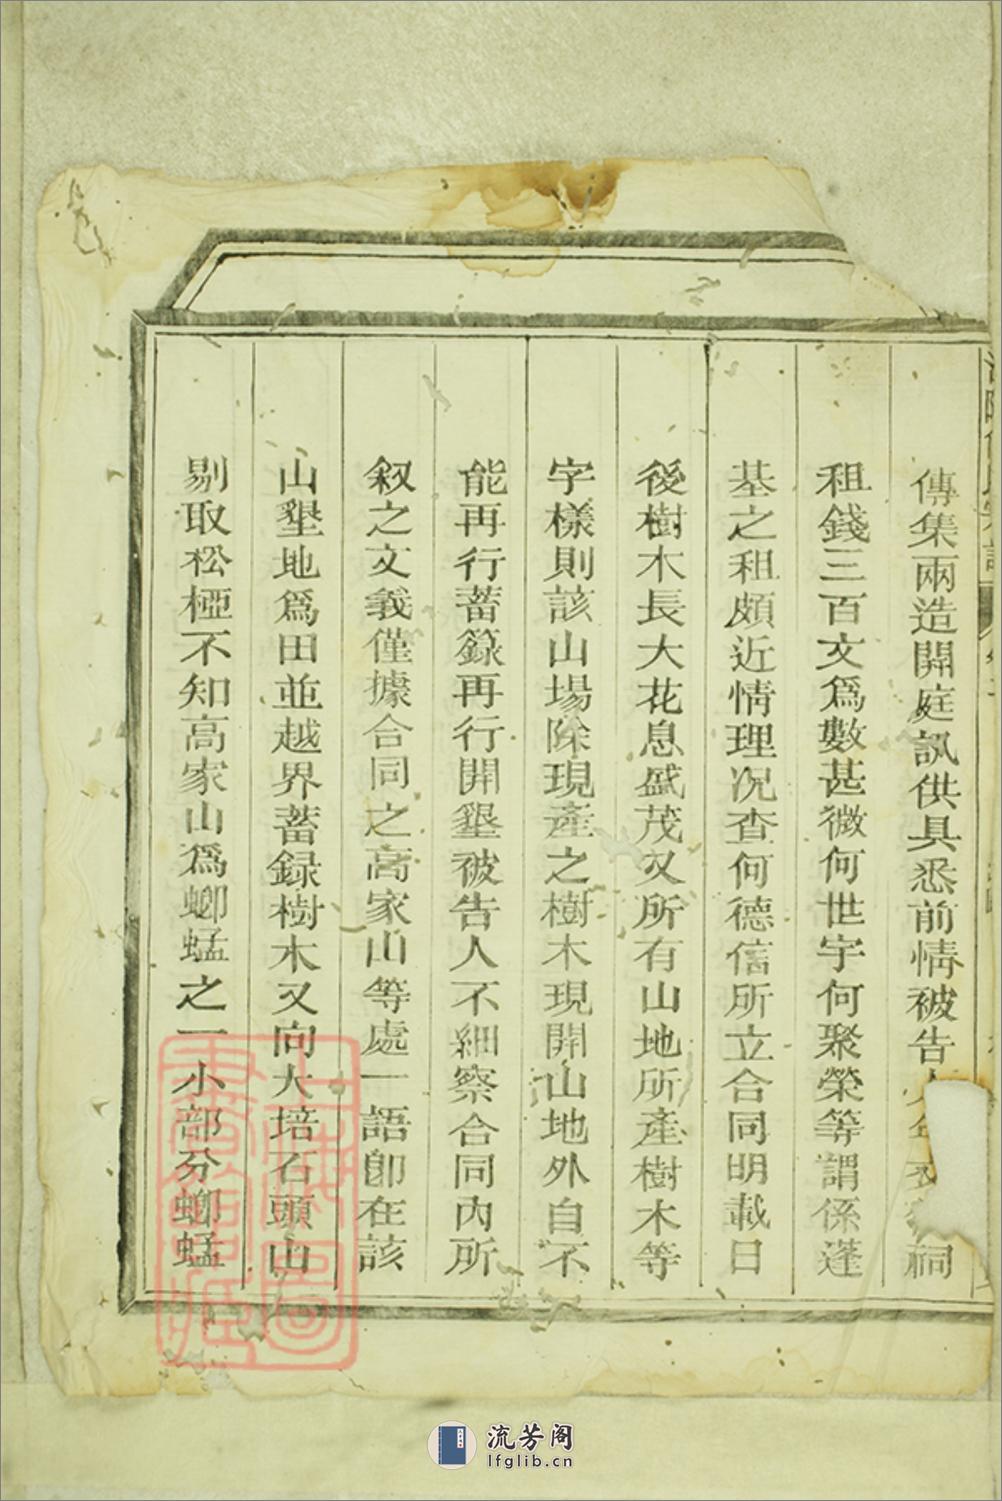 傳集兩造開庭訊供具悉前情被告人年衣祠
租錢三百文爲數甚微何世宇何聚榮等謂係蓬
基之租頗近情理况查何德信所立合同明載日
後樹木長大花息盛茂又所有山地所產樹木等
字樣則該山場除現產之樹木現開山地外自不
能再行蓄籙再行開墾被告人不細察合同內所
叙之文義僅據合同之高家山等處一語卽在該
山墾地爲田並越界蓄録樹木又向大培石頭山
剔取松椏不知高家山爲螂蜢之一小部分螂蜢
上海圖書館藏
流芳阁
lfglib.cn